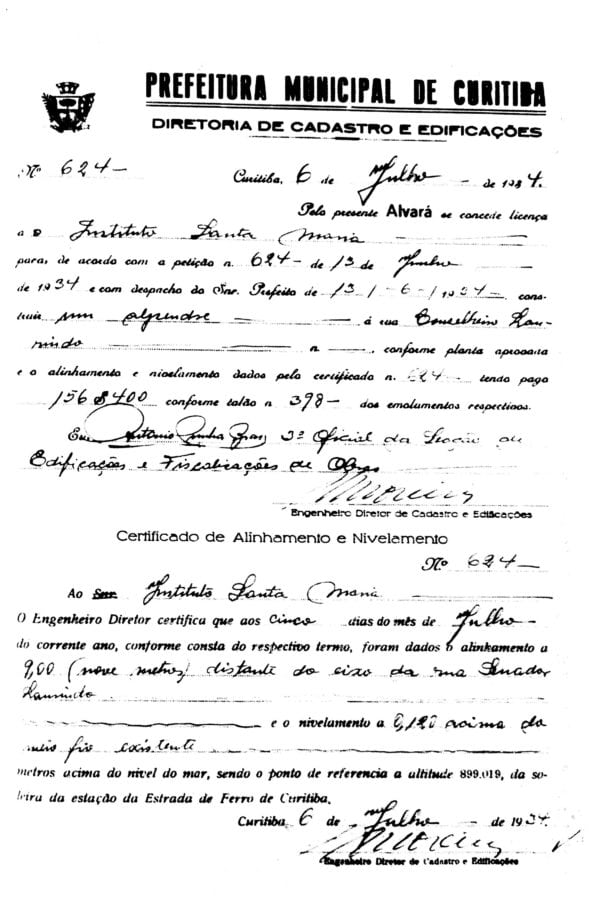 PREFEITURA MUNICIPAL DE CURITIBA
DIRETORIA DE CADASTRO E EDIFICAÇÕES
Nº 624-
Curitiba, 6 de Julho - de 1934.
Pelo presente Alvará se concede licença
a o Instituto Santa Maria
para, de acordo com a petição n. 624- de 13 de Junho
de 1934 e com despacho do Snr. Prefeito de 13/-6-/1934-, cons-
truir um alpendre - á rua Conselheiro Lau-
rindo n. -, conforme planta aprovada
e o alinhamento e nivelamento dados pelo certificado n. 624- tendo pago
156$400 conforme talão n. 398- dos emolumentos respectivos.
Eu Antonio 3º Oficial da Secção de
Edificações e Fiscalizações de Obras
Engenheiro Diretor de Cadastro e Edificações
Certificado de Alinhamento e Nivelamento
Nº 624-
Ao Snr. Instituto Santa Maria
O Engenheiro Diretor certifica que aos Cinco dias do mês de Julho-
do corrente ano, conforme consta do respectivo termo, foram dados o alinhamento a
9,00 (nove metros) distante do eixo da rua Senador
Laurindo
e o nivelamento a 0,120 acima do
meio fio existente
metros acima do nivel do mar, sendo o ponto de referencia a altitude 899.019, da so-
leira da estação da Estrada de Ferro de Curitiba.
Curitiba, 6 de Julho - de 1934.
Engenheiro Diretor de Cadastro e Edificações